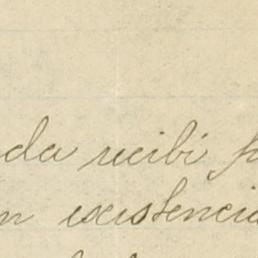 da recibi p
n existencia